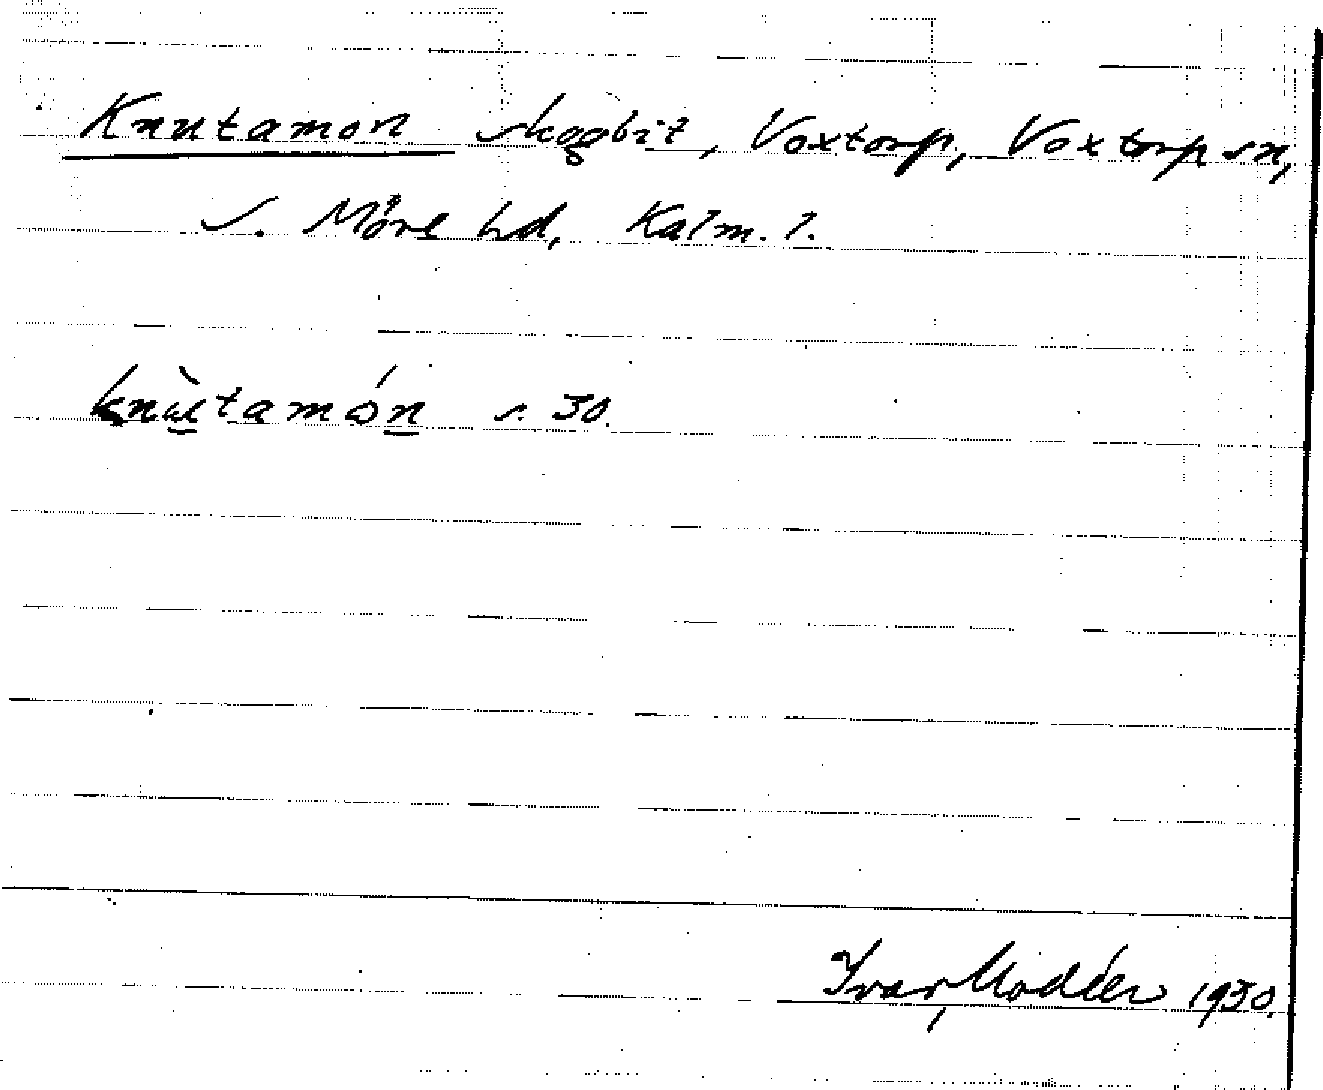 Knutamon skogbit, Voxtorp, Voxtorp sn,
S. Möre hd, Kalm. l.
knùtamón s. 30.
Ivar Modéer 1930.